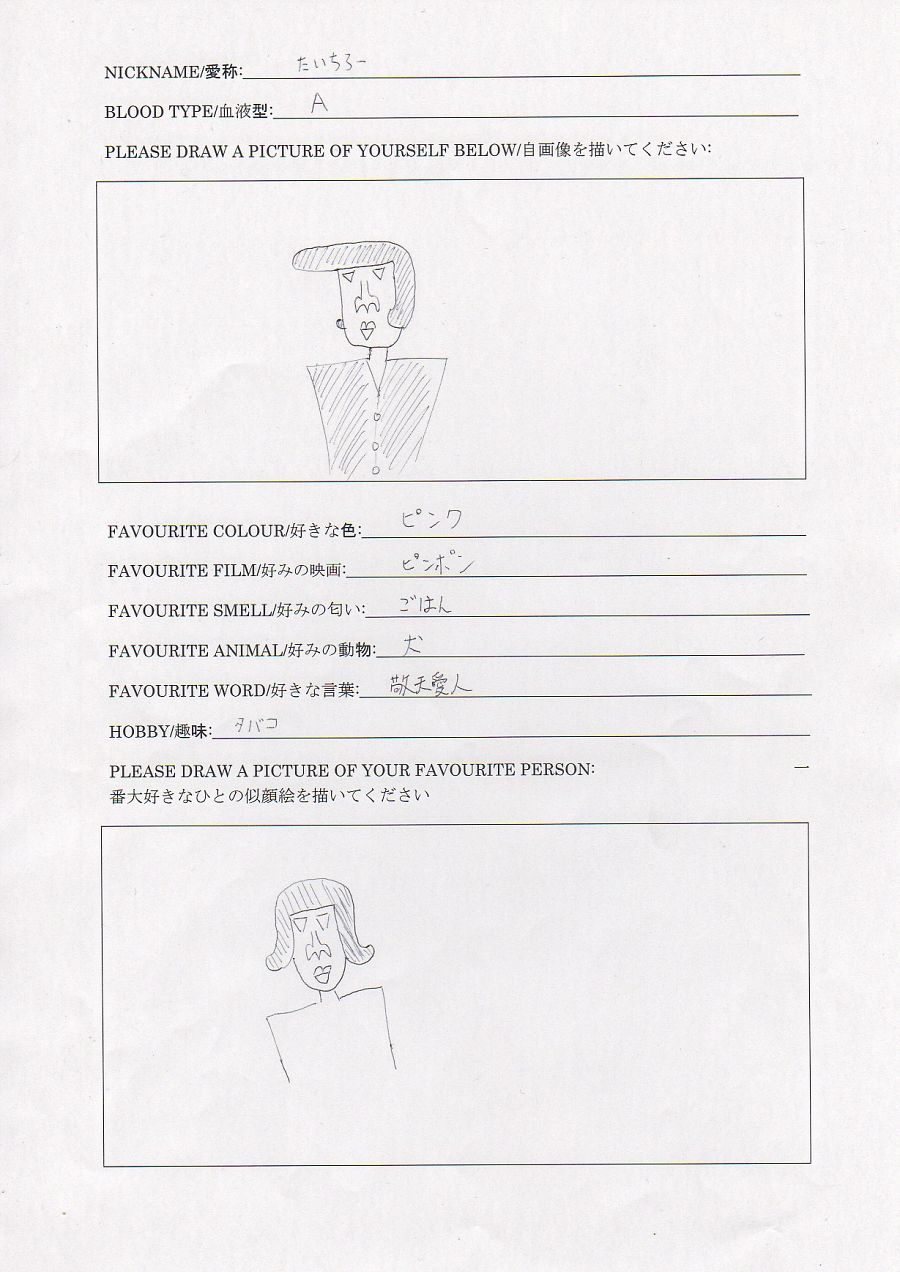 NICKNAME/愛称: たいちろー
BLOOD TYPE/血液型: A
PLEASE DRAW A PICTURE OF YOURSELF BELOW/自画像を描いてください:
FAVOURITE COLOUR/好きな色: ピンク
FAVOURITE FILM/好みの映画: ピンポン
FAVOURITE SMELL/好みの匂い: ごはん
FAVOURITE ANIMAL/好みの動物: 犬
FAVOURITE WORD/好きな言葉: 敬天愛人
HOBBY/趣味: タバコ
PLEASE DRAW A PICTURE OF YOUR FAVOURITE PERSON: 一
番大好きなひとの似顔絵を描いてください